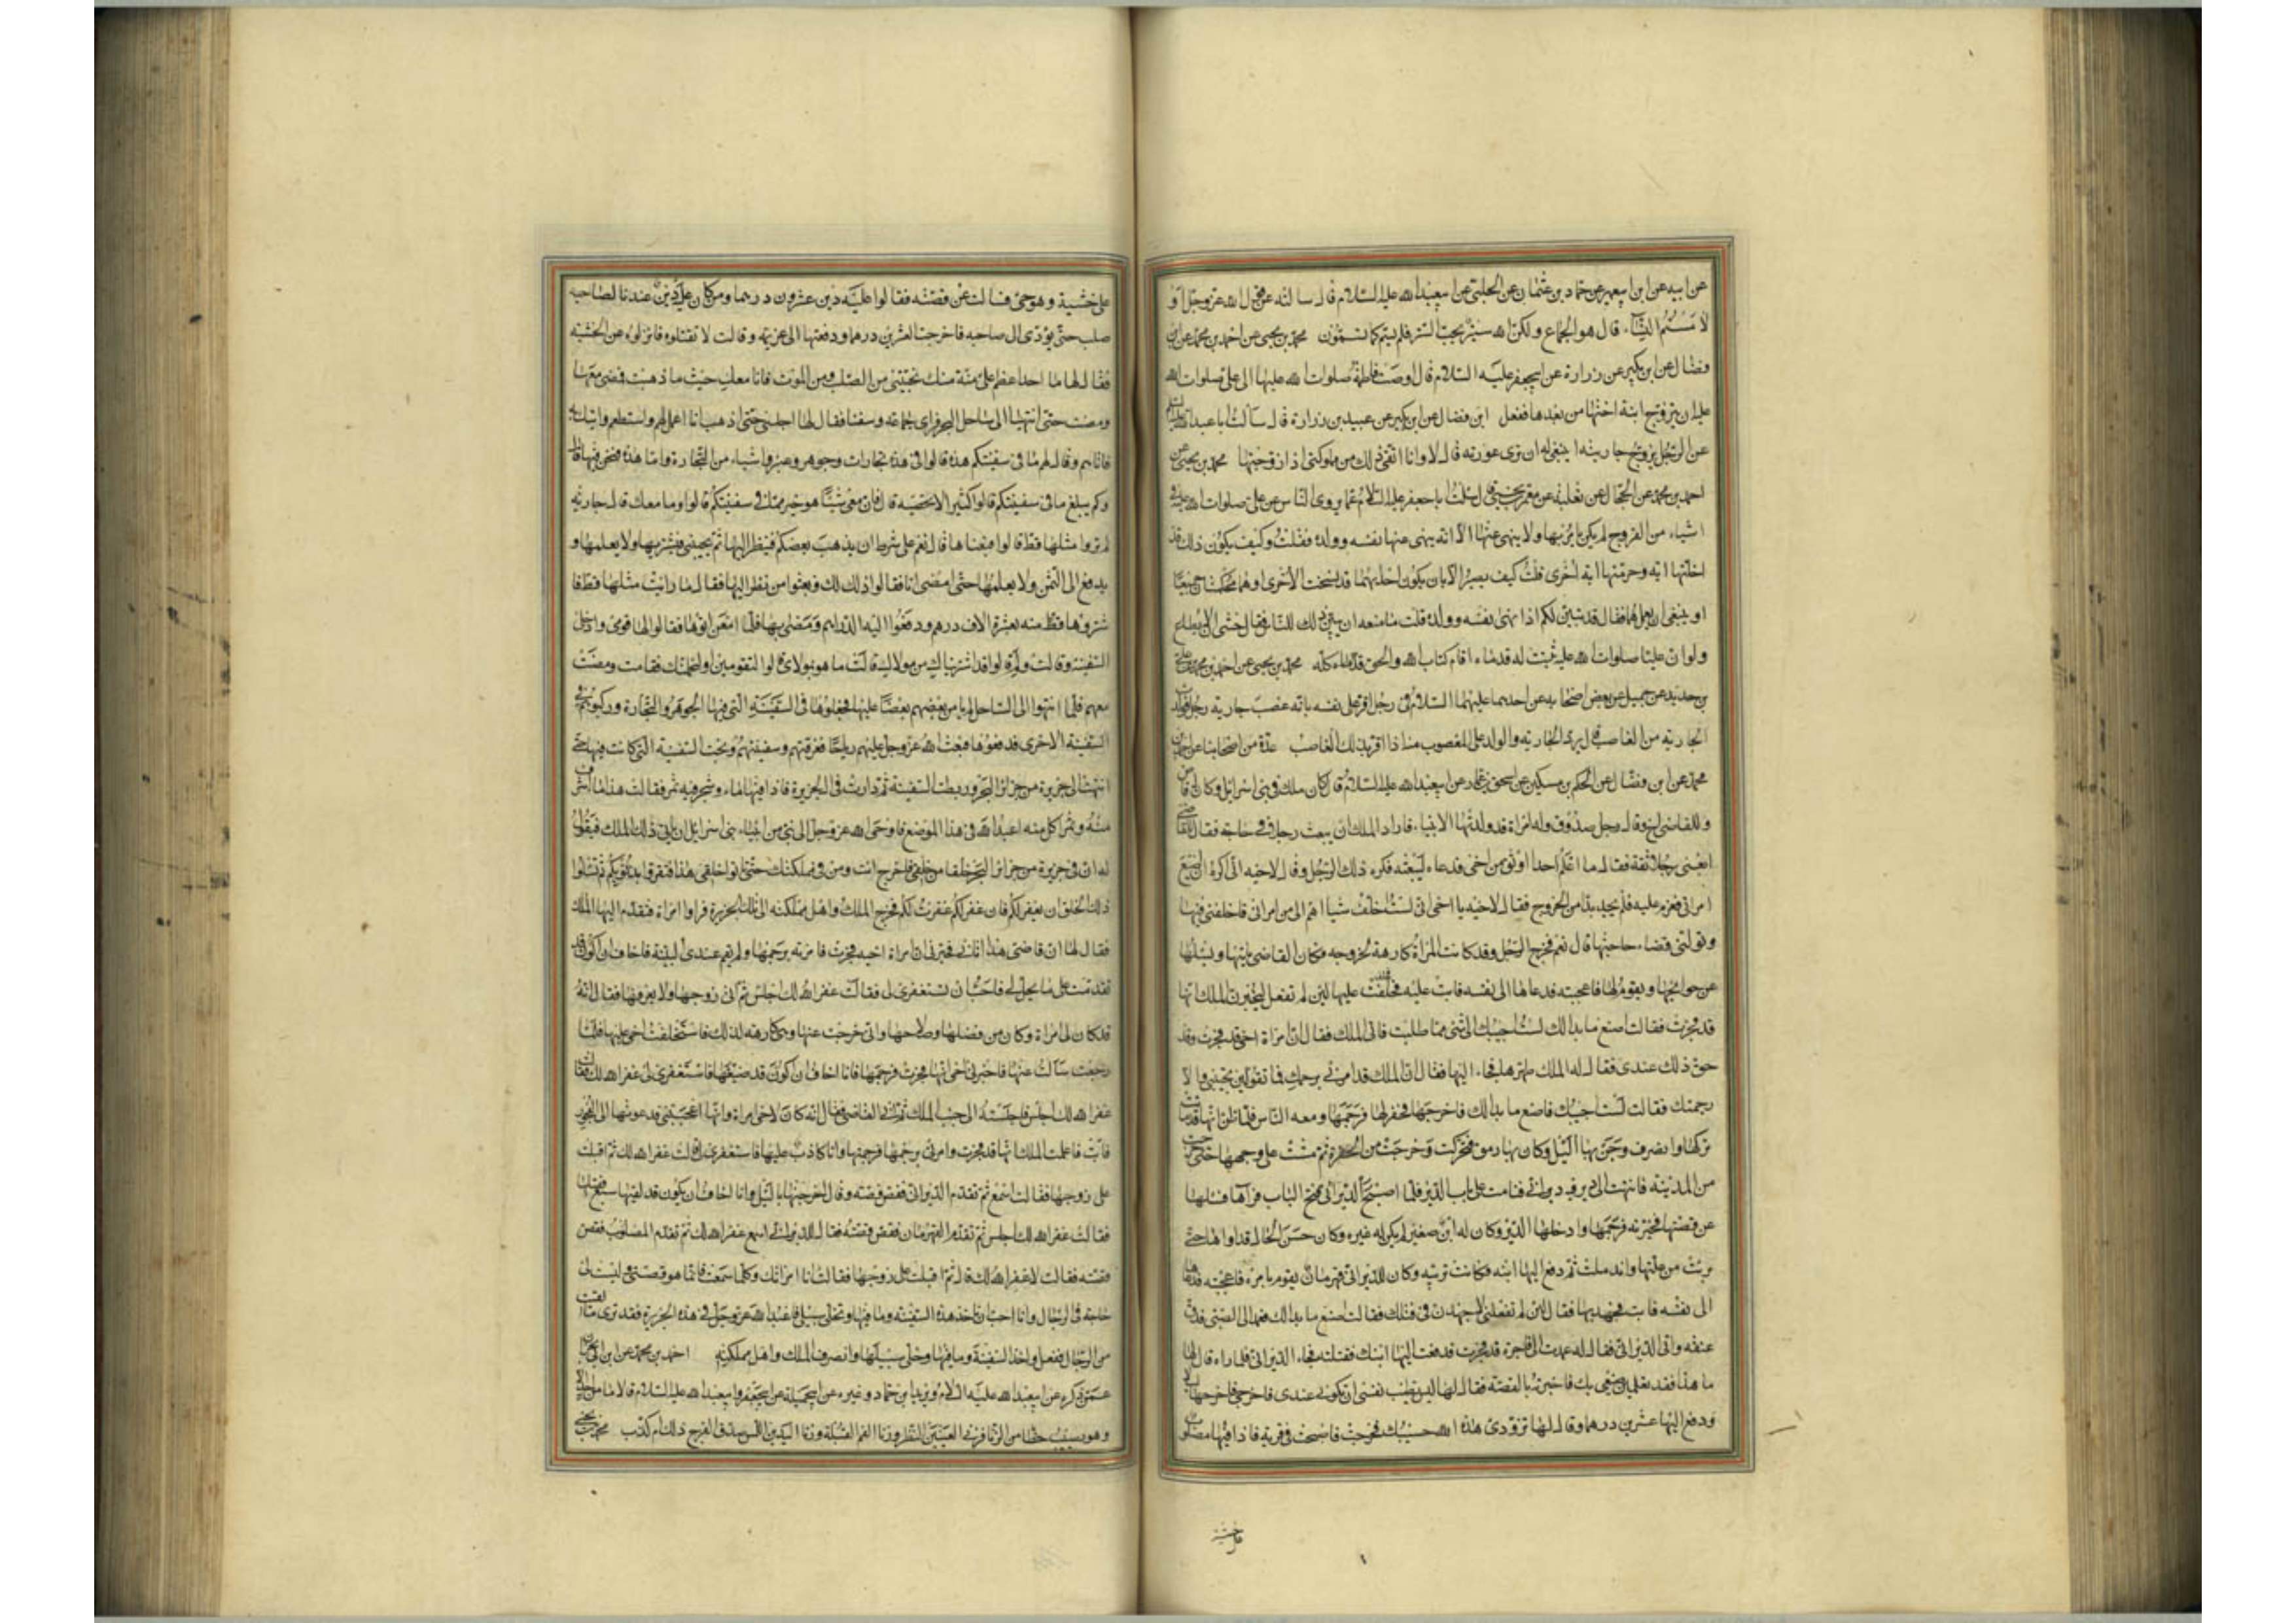 عن ابيه عن ابن ابيعمير عن حماد بن عثمان عن الحلبي عن ابيعبدالله عليه السلام قال سالته عن قول الله عز وجل او
لامستم النساء قال هو الجماع ولكن الله ستير يحب الستر فلم يسم كما تسمون محمد بن يحيى عن احمد بن محمد عن ابن
فضال عن ابن بكير عن زرارة عن ابيجعفر عليه السلام قال اوصت فاطمة صلوات الله عليها الى على صلوات الله
عليه ان يتزوج ابنة اختها من بعدها ففعل ابن فضال عن ابن بكير عن عبيد بن زرارة قال سالت اباعبدالله عليه السلم
عن الرجل يزوج جاريته اينبغى له ان ترى عورته قال لا وانا اتقى ذلك من مملوكتى اذا زوجتها محمد بن يحيى عن
احمد بن محمد عن الحجال عن ثعلبة عن معمر بن يحيى قال سالت اباجعفر عليه السلام عما يروى الناس عن على صلوات الله عليه فى
اشياء من الفروج لم يكن يامر بها ولا ينهى عنها الا انه ينهى عنها نفسه وولده فقلت وكيف يكون ذلك قد
احلتها اية وحرمتها اية اخرى قلت كيف يصير الا بان يكون احديهما قد نسخت الاخرى او هما محكمتان جميعا
او ينبغى ان يعمل بهما فقال قد تبين لكم اذا نهى نفسه وولده قلت ما منعه ان يبين ذلك للناس فقال خشى الا يطاع
ولو ان عليا صلوات الله عليه ثبتت له قدماه اقام كتاب الله والحق كله محمد بن يحيى عن احمد بن محمد عن على
بن حديد عن جميل عن بعض اصحابه عن احدهما عليهما السلام فى رجل اقر على نفسه بانه غصب جارية رجل فولدت
الجارية من الغاصب قال يرد الجارية والولد على المغصوب منه اذا اقر بذلك الغاصب عدة من اصحابنا عن احمد بن
محمد عن ابن فضال عن الحكم بن مسكين عن اسحق بن عمار عن ابيعبدالله عليه السلام قال كان ملك فى بنى اسرائيل وكان له قاض
وللقاضى اخ وكان رجل صدوق وله امراة قد ولدتها الانبياء فاراد الملك ان يبعث رجلا فى حاجة فقال للقاضى
ابغنى رجلا ثقة فقال ما اعلم احدا اوثق من اخى فدعاه ليبعثه فكره ذلك الرجل وقال لاخيه انى اكره ان اضيع
امراتى فعزم عليه فلم يجد بدا من الخروج فقال لاخيه يا اخى انى لست اخلف شيئا اهم الى من امراتى فاخلفنى فيها
وتول لى قضاء حاجتها قال نعم فخرج الرجل وقد كانت المراة كارهة لخروجه فكان القاضى ياتيها ويسئلها
عن حوائجها ويقوم لها فاعجبته فدعاها الى نفسه فابت عليه فحلف عليها لئن لم تفعل ليخبرن الملك انها
قد فجرت فقالت اصنع ما بدا لك لست اجيبك الى شئ مما طلبت فاتى الملك فقال ان امراة اخى قد فجرت وقد
حق ذلك عندى فقال له الملك طهرها فجاء اليها فقال ان الملك قد امرنى برجمك فما تقولين تجيبنى والا
رجمتك فقالت لست اجيبك فاصنع ما بدا لك فاخرجها فحفر لها فرجمها ومعه الناس فلما ظن انها قد ماتت
تركها وانصرف وجن بها الليل وكان بها رمق فتحركت وخرجت من الحفرة ثم مشت على وجهها حتى خرجت
من المدينة فانتهت الى دير فيه ديرانى فنامت على باب الدير فلما اصبح الديرانى فتح الباب فراها فسئلها
عن قصتها فخبرته فرحمها وادخلها الدير وكان له ابن صغير لم يكن له غيره وكان حسن الحال فداواها حتى
برئت من علتها واندملت ثم دفع اليها ابنه فكانت تربيه وكان للديرانى قهرمان يقوم بامره فاعجبته فدعاها
الى نفسه فابت فجهد بها فقال لئن لم تفعلى لاجهدن فى قتلك فقالت اصنع ما بدا لك فعمد الى الصبى فدق
عنقه واتى الديرانى فقال له عمدت الى فاجرة قد فجرت فدفعت اليها ابنك فقتلته فجاء الديرانى فلما راه قال لها
ما هذا فقد تعلمين صنيعى بك فاخبرته بالقصة فقال لها ليس تطيب نفسى ان تكونى عندى فاخرجى فاخرجها ليلا
ودفع اليها عشرين درهما وقال لها تزودى هذه الله حسبك فخرجت فاصبحت فى قرية فاذا فيها مصلوب
على خشبة وهو حى فسالت عن قصته فقالوا عليه دين عشرون درهما ومن كان عليه دين عندنا لصاحبه
صلب حتى يؤدى الى صاحبه فاخرجت العشرين درهما ودفعتها الى غريمه وقالت لا تقتلوه فانزلوه عن الخشبة
فقال لها ما احد اعظم على منة منك نجيتنى من الصلب ومن الموت فانا معك حيث ما ذهبت فمضى معها
ومضت حتى انتهيا الى ساحل البحر فراى جماعة وسفنا فقال لها اجلسى حتى اذهب انا اعمل لهم واستطعم واتيك به
فاتاهم وقال لهم ما فى سفينتكم هذه قالوا فى هذه تجارات وجوهر وعنبر واشياء من التجارة واما هذه فنحن فيها قال
وكم يبلغ ما فى سفينتكم قالوا كثير الا نحصيه قال فان معى شيئا هو خير مما فى سفينتكم قالوا وما معك قال جارية
لم تروا مثلها قط قالوا فبعناها قال نعم على شرط ان يذهب بعضكم فينظر اليها ثم يجيئنى فيشتريها ولا يعلمها و
يدفع الى الثمن ولا يعلمها حتى امضى انا فقالوا ذلك لك فبعثوا من نظر اليها فقال ما رايت مثلها قط فا
شتروها منه بعشرة الاف درهم ودفعوا اليه الدراهم ومضى بها فلما امعن اتوها فقالوا لها قومى وادخلى
السفينة قالت ولم قالوا قد اشتريناك من مولاك قالت ما هو بمولاى قالوا لتقومين او لنحملنك فقامت ومضت
معهم فلما انتهوا الى الساحل لم يامن بعضهم بعضا عليها فجعلوها فى السفينة التى فيها الجوهر والتجارة وركبوا هم فى
السفينة الاخرى فدفعوها فبعث الله عز وجل عليهم رياحا فغرقتهم وسفينتهم ونجت السفينة التى كانت فيها حتى
انتهت الى جزيرة من جزائر البحر وربطت السفينة ثم دارت فى الجزيرة فاذا فيها ماء وشجر فيه ثمر فقالت هذا ماء اشرب
منه وثمر اكل منه اعبد الله فى هذا الموضع فاوحى الله عز وجل الى نبى من انبياء بنى اسرائيل ان ياتى ذلك الملك فيقول
له ان فى جزيرة من جزائر البحر خلقا من خلقى فاخرج انت ومن فى مملكتك حتى تاتوا خلقى هذا فتقروا له بذنوبكم ثم تسئلوا
ذلك الخلق ان يغفر لكم فان غفر لكم غفرت لكم فخرج الملك واهل مملكته الى تلك الجزيرة فراوا امراة فتقدم اليها الملك
فقال لها ان قاضى هذا اتانى فخبرنى ان امراة اخيه فجرت فامرته برجمها ولم يقم عندى البينة فاخاف ان اكون قد
تقدمت على ما لا يحل لى فاحب ان تستغفرى لى فقالت غفر الله لك اجلس ثم اتى زوجها ولا يعرفها فقال انه
قد كان لى امراة وكان من فضلها وصلاحها وانى خرجت عنها وهى كارهة لذلك فاستخلفت اخى عليها فلما
رجعت سالت عنها فاخبرنى اخى انها فجرت فرجمها فانا اخاف ان اكون قد ضيعتها فاستغفرى لى غفر الله لك فقالت
غفر الله لك اجلس فاجلسته الى جنب الملك ثم اتى القاضى فقال انه كان لاخى امراة وانها اعجبتنى فدعوتها الى الفجور
فابت فاعلمت الملك انها قد فجرت وامرنى برجمها فرجمتها وانا كاذب عليها فاستغفرى لى قالت غفر الله لك ثم اقبلت
على زوجها فقالت اسمع ثم تقدم الديرانى فقص قصته وقال اخرجتها بالليل وانا اخاف ان يكون قد لقيها سبع فقتلها
فقالت غفر الله لك اجلس ثم تقدم القهرمان فقص قصته فقالت للديرانى اسمع غفر الله لك ثم تقدم المصلوب فقص
قصته فقالت لا غفر الله لك قال ثم اقبلت على زوجها فقالت انا امراتك وكلما سمعت فانما هو قصتى وليست لى
حاجة فى الرجال وانا احب ان تاخذ هذه السفينة وما فيها وتخلى سبيلى فاعبد الله عز وجل فى هذه الجزيرة فقد ترى ما لقيت
من الرجال ففعل واخذ السفينة وما فيها وخلى سبيلها وانصرف الملك واهل مملكته احمد بن محمد عن ابن ابي نجران
عمن ذكره عن ابيعبدالله عليه السلام ويزيد بن حماد وغيره عن ابيجميلة عن ابيجعفر وابيعبدالله عليه السلام قالا ما من احد الا
وهو يصيب حظا من الزنا فزنى العينين النظر وزنا الفم القبلة وزنا اليدين اللمس صدق الفرج ذلك ام كذب محمد بن يحيى
على خشبة